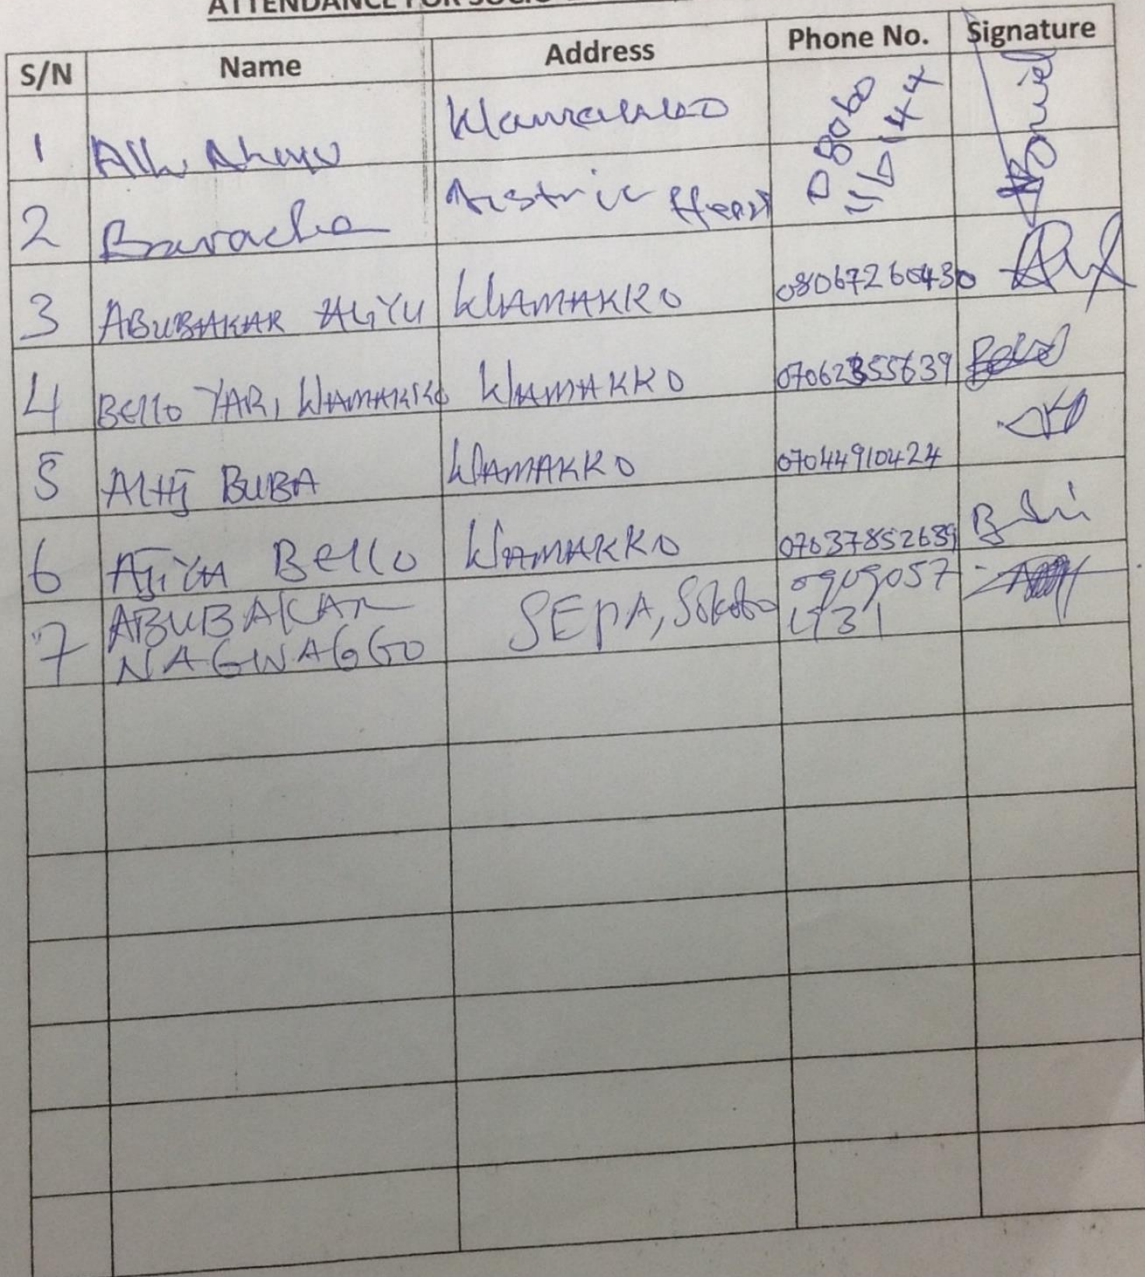 ATTENDANCE FOR SOCIO
S/N Name Address Phone No. Signature
1 Alh. Aliyu Wamakko 08060
2 Baracha District Head 116144
3 ABUBAKAR ALIYU WAMAKKO 08067260430
4 BELLO YARI WAMAKKO WAMAKKO 07062355639 Bello
5 ALHJ BUBA WAMAKKO 07044910424
6 AJIYA BELLO WAMAKKO 07037852689
7 ABUBAKAR SEPA, Sokoto 0909057
NAGWAGGO 4731